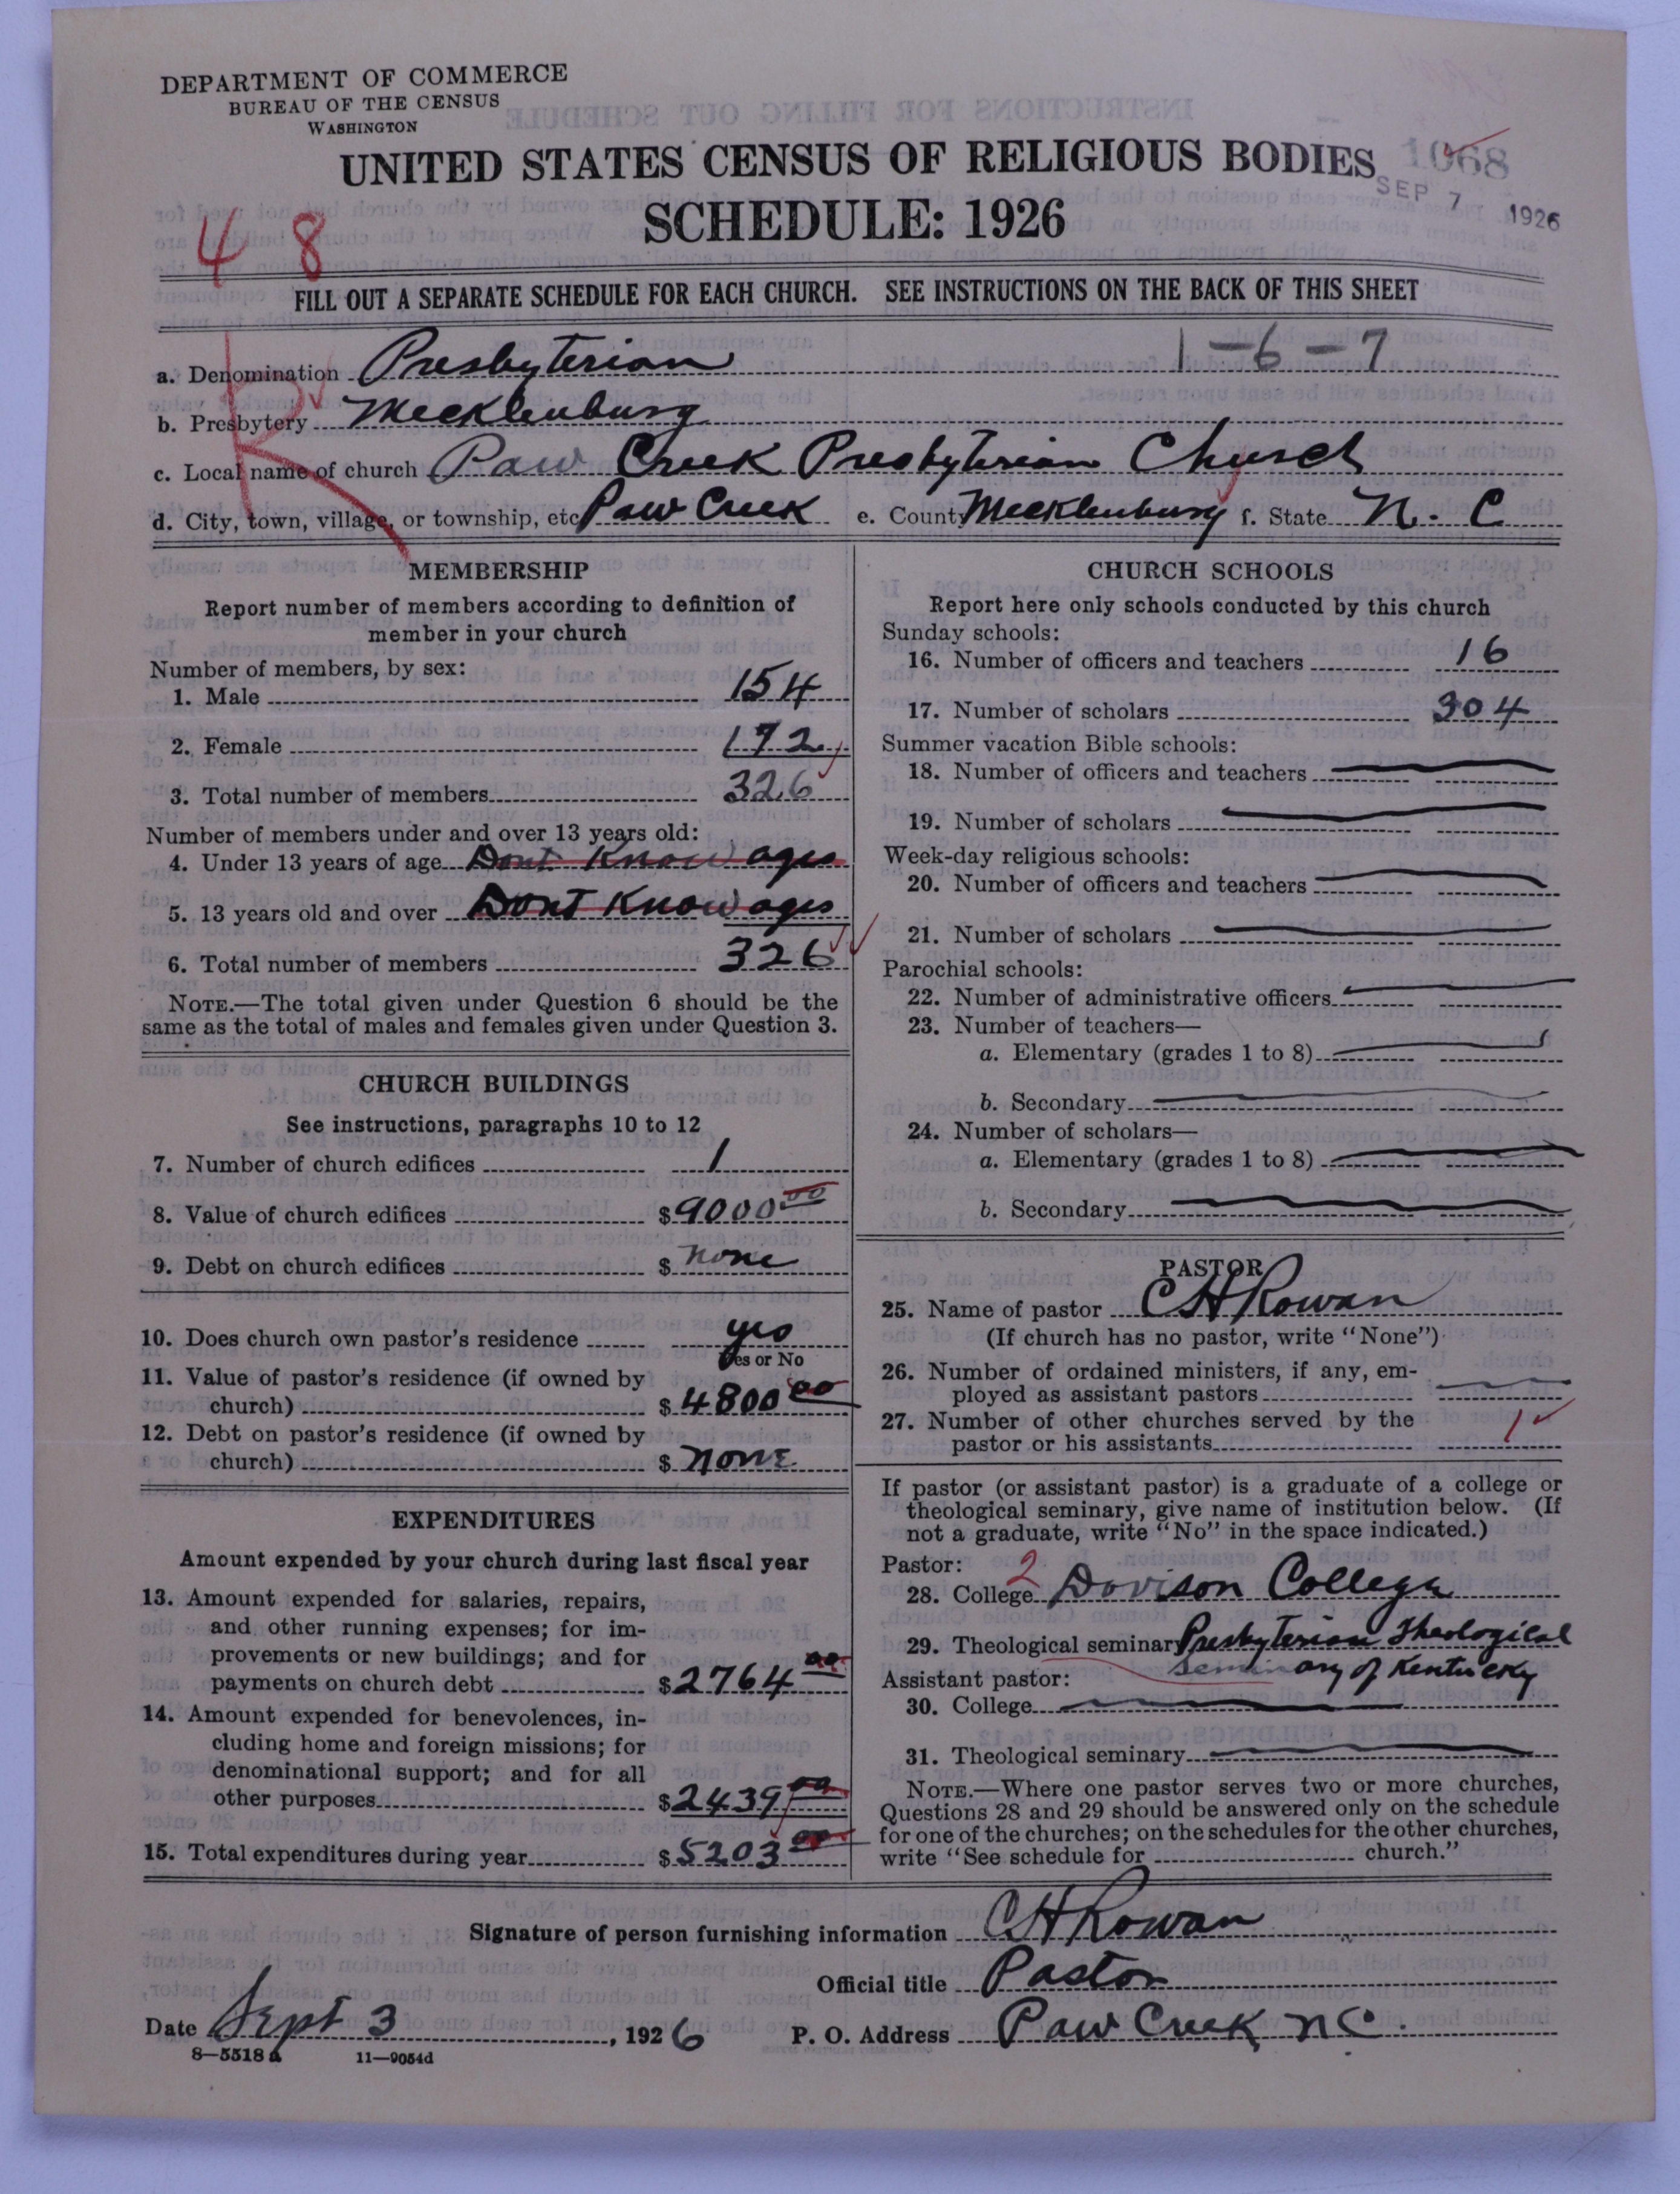 DEPARTMENT OF COMMERCE
BUREAU OF THE CENSUS
WASHINGTON
UNITED STATES CENSUS OF RELIGIOUS BODIES
1068
SEP 7 1926
SCHEDULE: 1926
4 8
FILL OUT A SEPARATE SCHEDULE FOR EACH CHURCH. SEE INSTRUCTIONS ON THE BACK OF THIS SHEET
1-6-7
R
a. Denomination Presbyterian
b. Presbytery Mecklenburg
c. Local name of church Paw Creek Presbyterian Church
d. City, town, village, or township, etc Paw Creek e. County Mecklenburg f. State N. C
MEMBERSHIP
Report number of members according to definition of
member in your church
Number of members, by sex:
1. Male 154
2. Female 172
3. Total number of members 326
Number of members under and over 13 years old:
4. Under 13 years of age Dont Know ages
5. 13 years old and over Dont Know ages
6. Total number of members 326
NOTE.—The total given under Question 6 should be the
same as the total of males and females given under Question 3.
CHURCH BUILDINGS
See instructions, paragraphs 10 to 12
7. Number of church edifices 1
8. Value of church edifices $9000 00
9. Debt on church edifices $ none
10. Does church own pastor's residence yes
Yes or No
11. Value of pastor's residence (if owned by
church) $ 4800 00
12. Debt on pastor's residence (if owned by
church) $ none
EXPENDITURES
Amount expended by your church during last fiscal year
13. Amount expended for salaries, repairs,
and other running expenses; for im-
provements or new buildings; and for
payments on church debt $2764 00
14. Amount expended for benevolences, in-
cluding home and foreign missions; for
denominational support; and for all
other purposes $2439 00
15. Total expenditures during year $5203 00
CHURCH SCHOOLS
Report here only schools conducted by this church
Sunday schools:
16. Number of officers and teachers 16
17. Number of scholars 304
Summer vacation Bible schools:
18. Number of officers and teachers
19. Number of scholars
Week-day religious schools:
20. Number of officers and teachers
21. Number of scholars
Parochial schools:
22. Number of administrative officers
23. Number of teachers—
a. Elementary (grades 1 to 8)
b. Secondary
24. Number of scholars—
a. Elementary (grades 1 to 8)
b. Secondary
PASTOR
25. Name of pastor C H Rowan
(If church has no pastor, write "None")
26. Number of ordained ministers, if any, em-
ployed as assistant pastors
27. Number of other churches served by the
pastor or his assistants 1
If pastor (or assistant pastor) is a graduate of a college or
theological seminary, give name of institution below. (If
not a graduate, write "No" in the space indicated.)
Pastor: 2
28. College Davison College
29. Theological seminary Presbyterian Theological
Seminary of Kentucky
Assistant pastor:
30. College
31. Theological seminary
NOTE.—Where one pastor serves two or more churches,
Questions 28 and 29 should be answered only on the schedule
for one of the churches; on the schedules for the other churches,
write "See schedule for church."
Signature of person furnishing information C H Rowan
Official title Pastor
Date Sept 3, 1926 P. O. Address Paw Creek NC.
8—5518 a 11—9054d